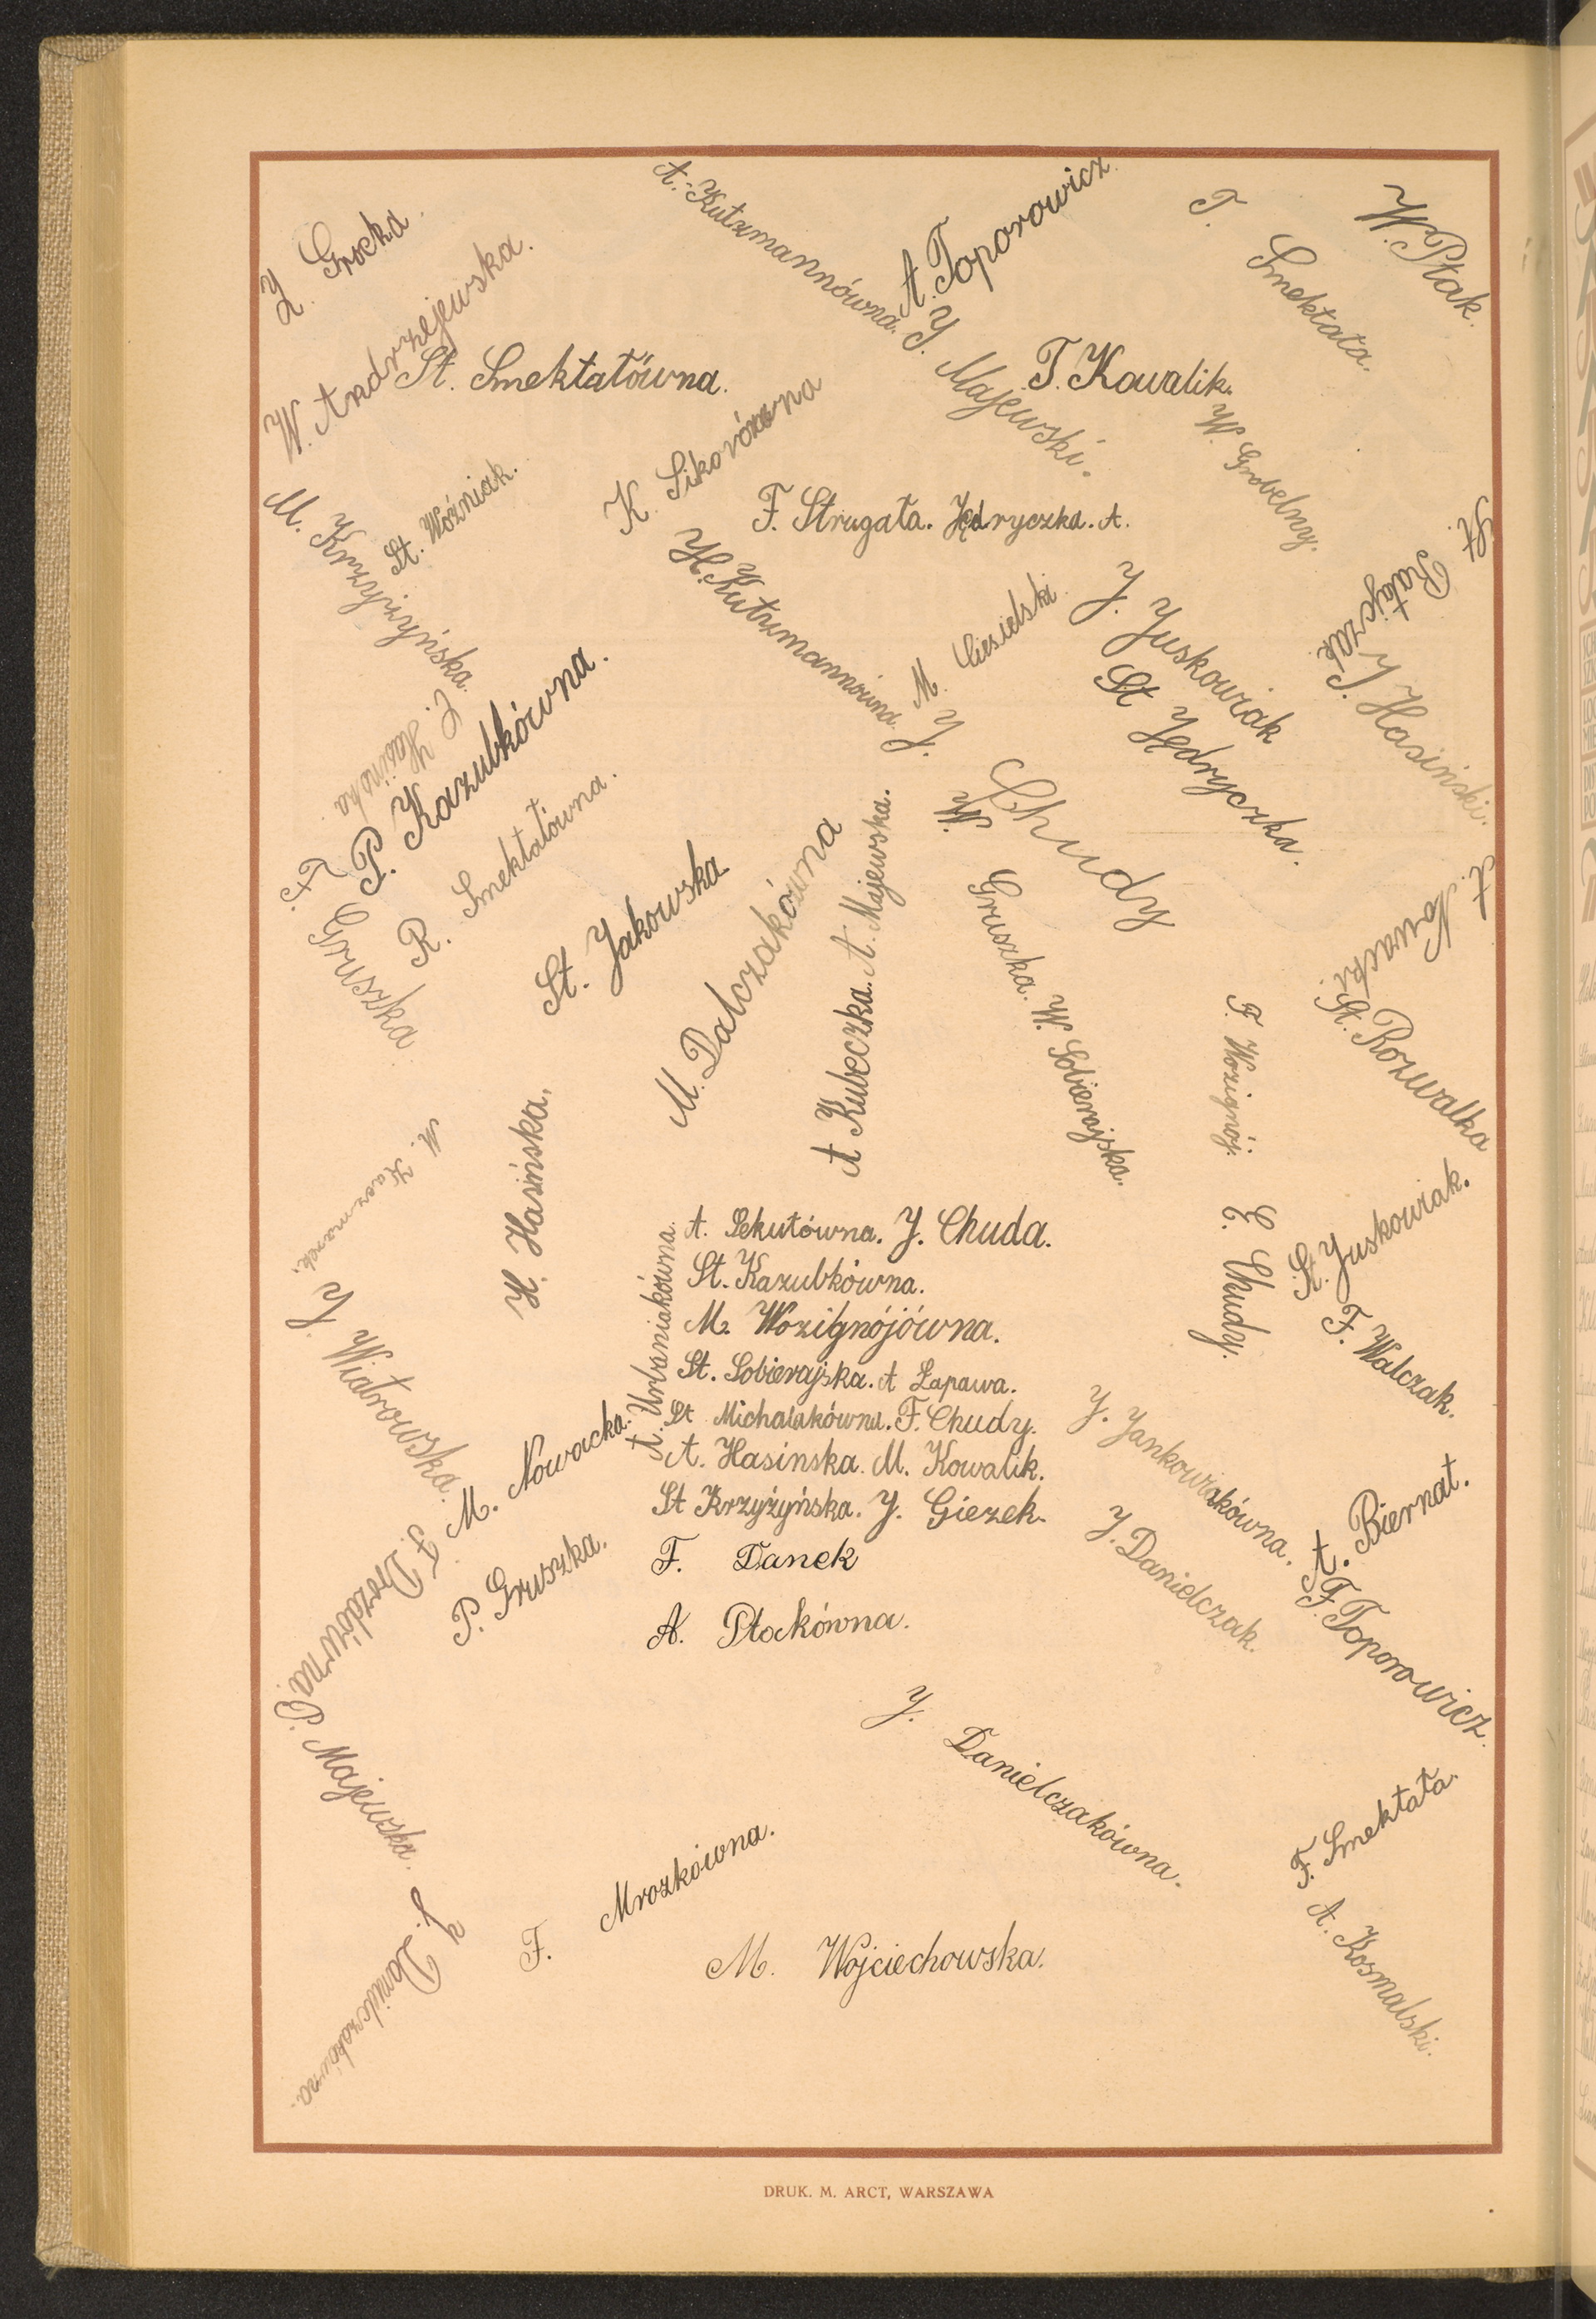 Z. Grocka.
W. Andrzejewska.
St. Smektałówna.
A. Kutzmannówna.
A. Toporowicz.
T. Smektała.
W. Ptak.
J. Majewski.
T. Kowalik.
W. Grobelny.
M. Krzyżyńska.
St. Woźniak.
K. Sikorówna
F. Strugała. Jędryczka. A.
H. Kutzmannówna.
M. Ciesielski.
J. Juskowiak
St Jędryczka.
St. Ratajczak.
J. Hasiński.
C. Hasińska.
P. Kazubkówna.
R. Smektałówna.
F. Gruszka.
St. Jakowska
M. Dalczakówna
A Kubeczka. A. Majewska.
J. Chudy
W. Gruszka. W. Sobierajska.
A. Nowacki.
St. Rozwalka
F. Wozignój.
M. Kaczmarek.
H. Hasińska.
J. Wiatrowska.
A. Urbaniakówna.
A. Sekutówna. J. Chuda.
St. Kazubkówna.
M. Wozignójówna.
St. Sobierajska. A Łapawa.
St Michalakówna. F. Chudy.
A. Hasinska. M. Kowalik.
St Krzyżyńska. J. Giezek.
F. Danek
A. Płockówna.
C. Chudy.
St. Juskowiak.
F. Walczak.
J. Jankowiakówna.
A. Biernat.
J. Danielczak.
F. Toporowicz.
M. Nowacka.
P. Gruszka.
F. Drozdówna.
P. Majewska.
J. Danielczakówna.
J. Danielczakówna.
F. Mrozkówna.
M. Wojciechowska.
F. Smektała.
A. Kosmalski.
DRUK. M. ARCT, WARSZAWA